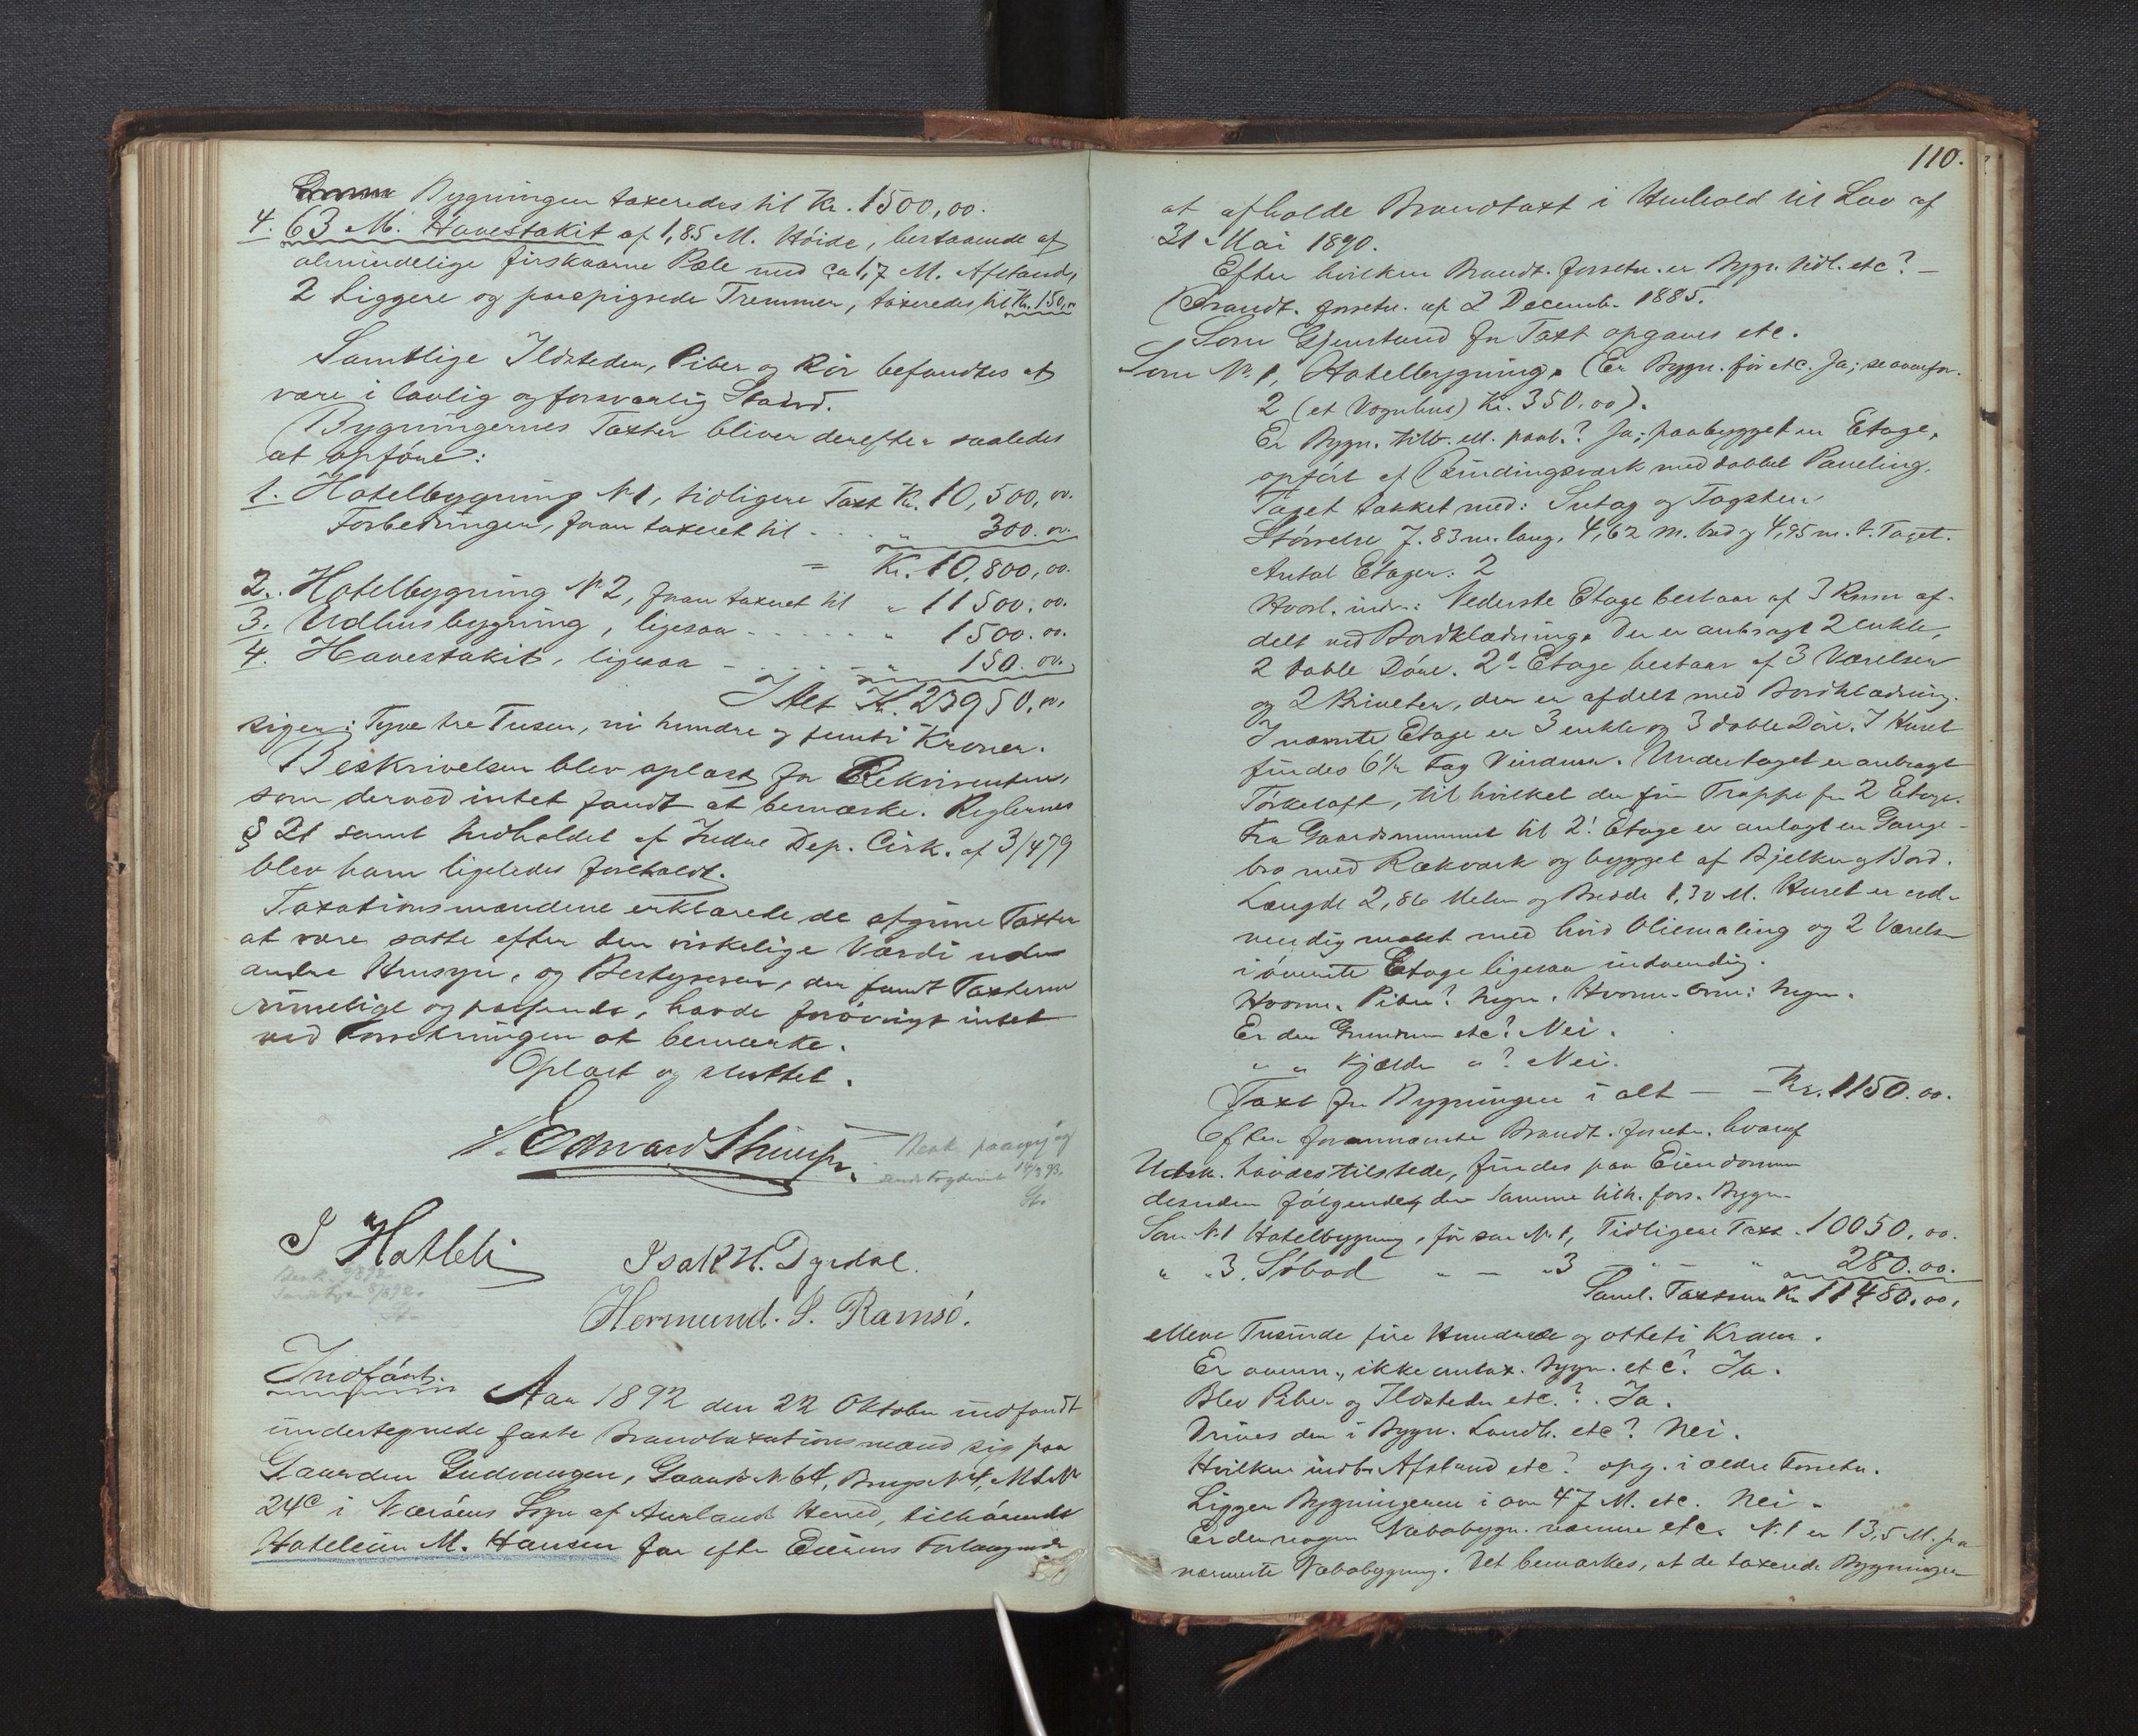 Bygningen taxeredes til Kr. 1500,00.
4. 63 M. Havestakit af 1,85 M. Höide, bestaaende af
almindelige firskaarne Pæle med ca 1,7 M. Afstand,
2 Liggere og paaspigrede Tremmer, taxeredes til Kr. 150,00
Samtlige Ildsteder, Piber og Rör befandtes at
være i lovlig og forsvarlig Stand.
Bygningernes Taxter bliver derefter saaledes
at opföre:
1. Hotelbygning № 1, tidligere Taxt Kr. 10,500,00.
Forbedringer, foran taxeret til . . . „ 300.00.
= Kr. 10,800,00.
2. Hotelbygning № 2, foran taxeret til „ 11500.00.
3. Udhusbygning, ligesaa . . . . . . „ 1500.00.
4. Havestakit, ligesaa - . . . - „ 150.00.
I Alt Kr. 23950.00.
siger: Tyve tre Tusen, ni hundre og femti Kroner.
Beskrivelsen blev oplæst for Rekvirenten,
som derved intet fandt at bemærke. Reglernes
§ 21 samt Indholdet af Indre Dep. Cirk. af 3/4 79
blev ham ligeledes foreholdt.
Taxationsmændene erklærede de afgivne Taxter
at være satte efter den virkelige Værdi uden
andre Hensyn, og Bestyreren, der fandt Taxterne
rimelige og passende, havde forövrigt intet
ved Forretningen at bemærke.
Oplæst og sluttet.
Edvard
I Hatleli
Isak H. Dyrdal.
Hermund. S. Ramsö.
Indfört.
Aar 1892 den 22 Oktober indfandt
undertegnede faste Brandtaxationsmænd sig paa
Gaarden Gudvangen, Gaards № 64, Brugs № 4, M L №
24c i Næröens Sogn af Aurlands Herred, tilhörende
Hoteleier M. Hansen for efter Eierens Forlangende
110.
at afholde Brandtaxt i Henhold til Lov af
31 Mai 1890.
Efter hvilken Brandt. forretn. er Bygn. tidl. etc? —
Brandt. forretn. af 2 Decemb. 1885.
Som Gjenstand for Taxt opgaves etc.
Som № 1, Hotelbygning. (Er Bygn. för etc. Ja; se ovenfor.
2 (et Vognhus) Kr. 350.00).
Er Bygn. tilb. ell. paab.? Ja; paabygget en Etage,
opfört af Bindingsværk med dobbel Paneling.
Taget tækket med: Sutag og Tagsten
Störrelse 7.83 m. lang, 4,62 m. bred og 4,95 m. t. Taget.
Antal Etager: 2
Hvorl. indr.: Nederste Etage bestaar af 3 Rum af-
delt ved Bordklædning. Der er anbragt 2 enkle,
2 doble Döre. 2d Etage bestaar af 3 Værelser
og 2 Priveter, der er afdelt med Bordklædning.
I nævnte Etage er 3 enkle og 3 doble Döre. I Huset
findes 6 1/2 Fag Vinduer. Undertaget er anbragt
Törkeloft, til hvilket der förer Trappe fra 2 Etage.
Fra Gaardsrummet til 2! Etage er anlagt en Gange-
bro med Rækværk og bygget af Bjelker og Bord.
Længde 2,86 Meter og Bredde 1,30 M. Huset er ud-
vendig malet med hvid Oliemaling og 2 Værelser
i överste Etage ligesaa indvendig.
Hvorm. Piber? Ingen. Hvorm. Ovne: Ingen.
Er der Grundmur etc? Nei.
„ „ Kjælder „? Nei.
Taxt for Bygningen i alt — — Kr. 1150.00.
Efter forannævnte Brandt. forretn. hvoraf
Udsk. havdes tilstede, findes paa Eiendommen
desuden fölgende, der samme tilh. fors. Bygn.
Som № 1 Hotelbygning, för som № 1, Tidligere Taxt . 10050.00.
„ „ 3. Söbod „ — „ 3 — „ — „ 280.00.
Saml. Taxtsum Kr 11480.00.
elleve Tusinde fire Hundrede og otteti Kroner.
Er ovenn., ikke omtax. Bygn. etc? Ja.
Blev Piber og Ildsteder etc.? Ja.
Drives der i Bygn. Landh. etc? Nei.
Hvilken indb. Afstand etc? opg. i ældre Forretn.
Ligger Bygningerne i over 47 M. etc. Nei.
Er der nogen Nabobygn. nærmere etc. N. 1 er 13,5 M. fra
nærmeste Nabobygning. Det bemærkes, at de taxerede Bygninger